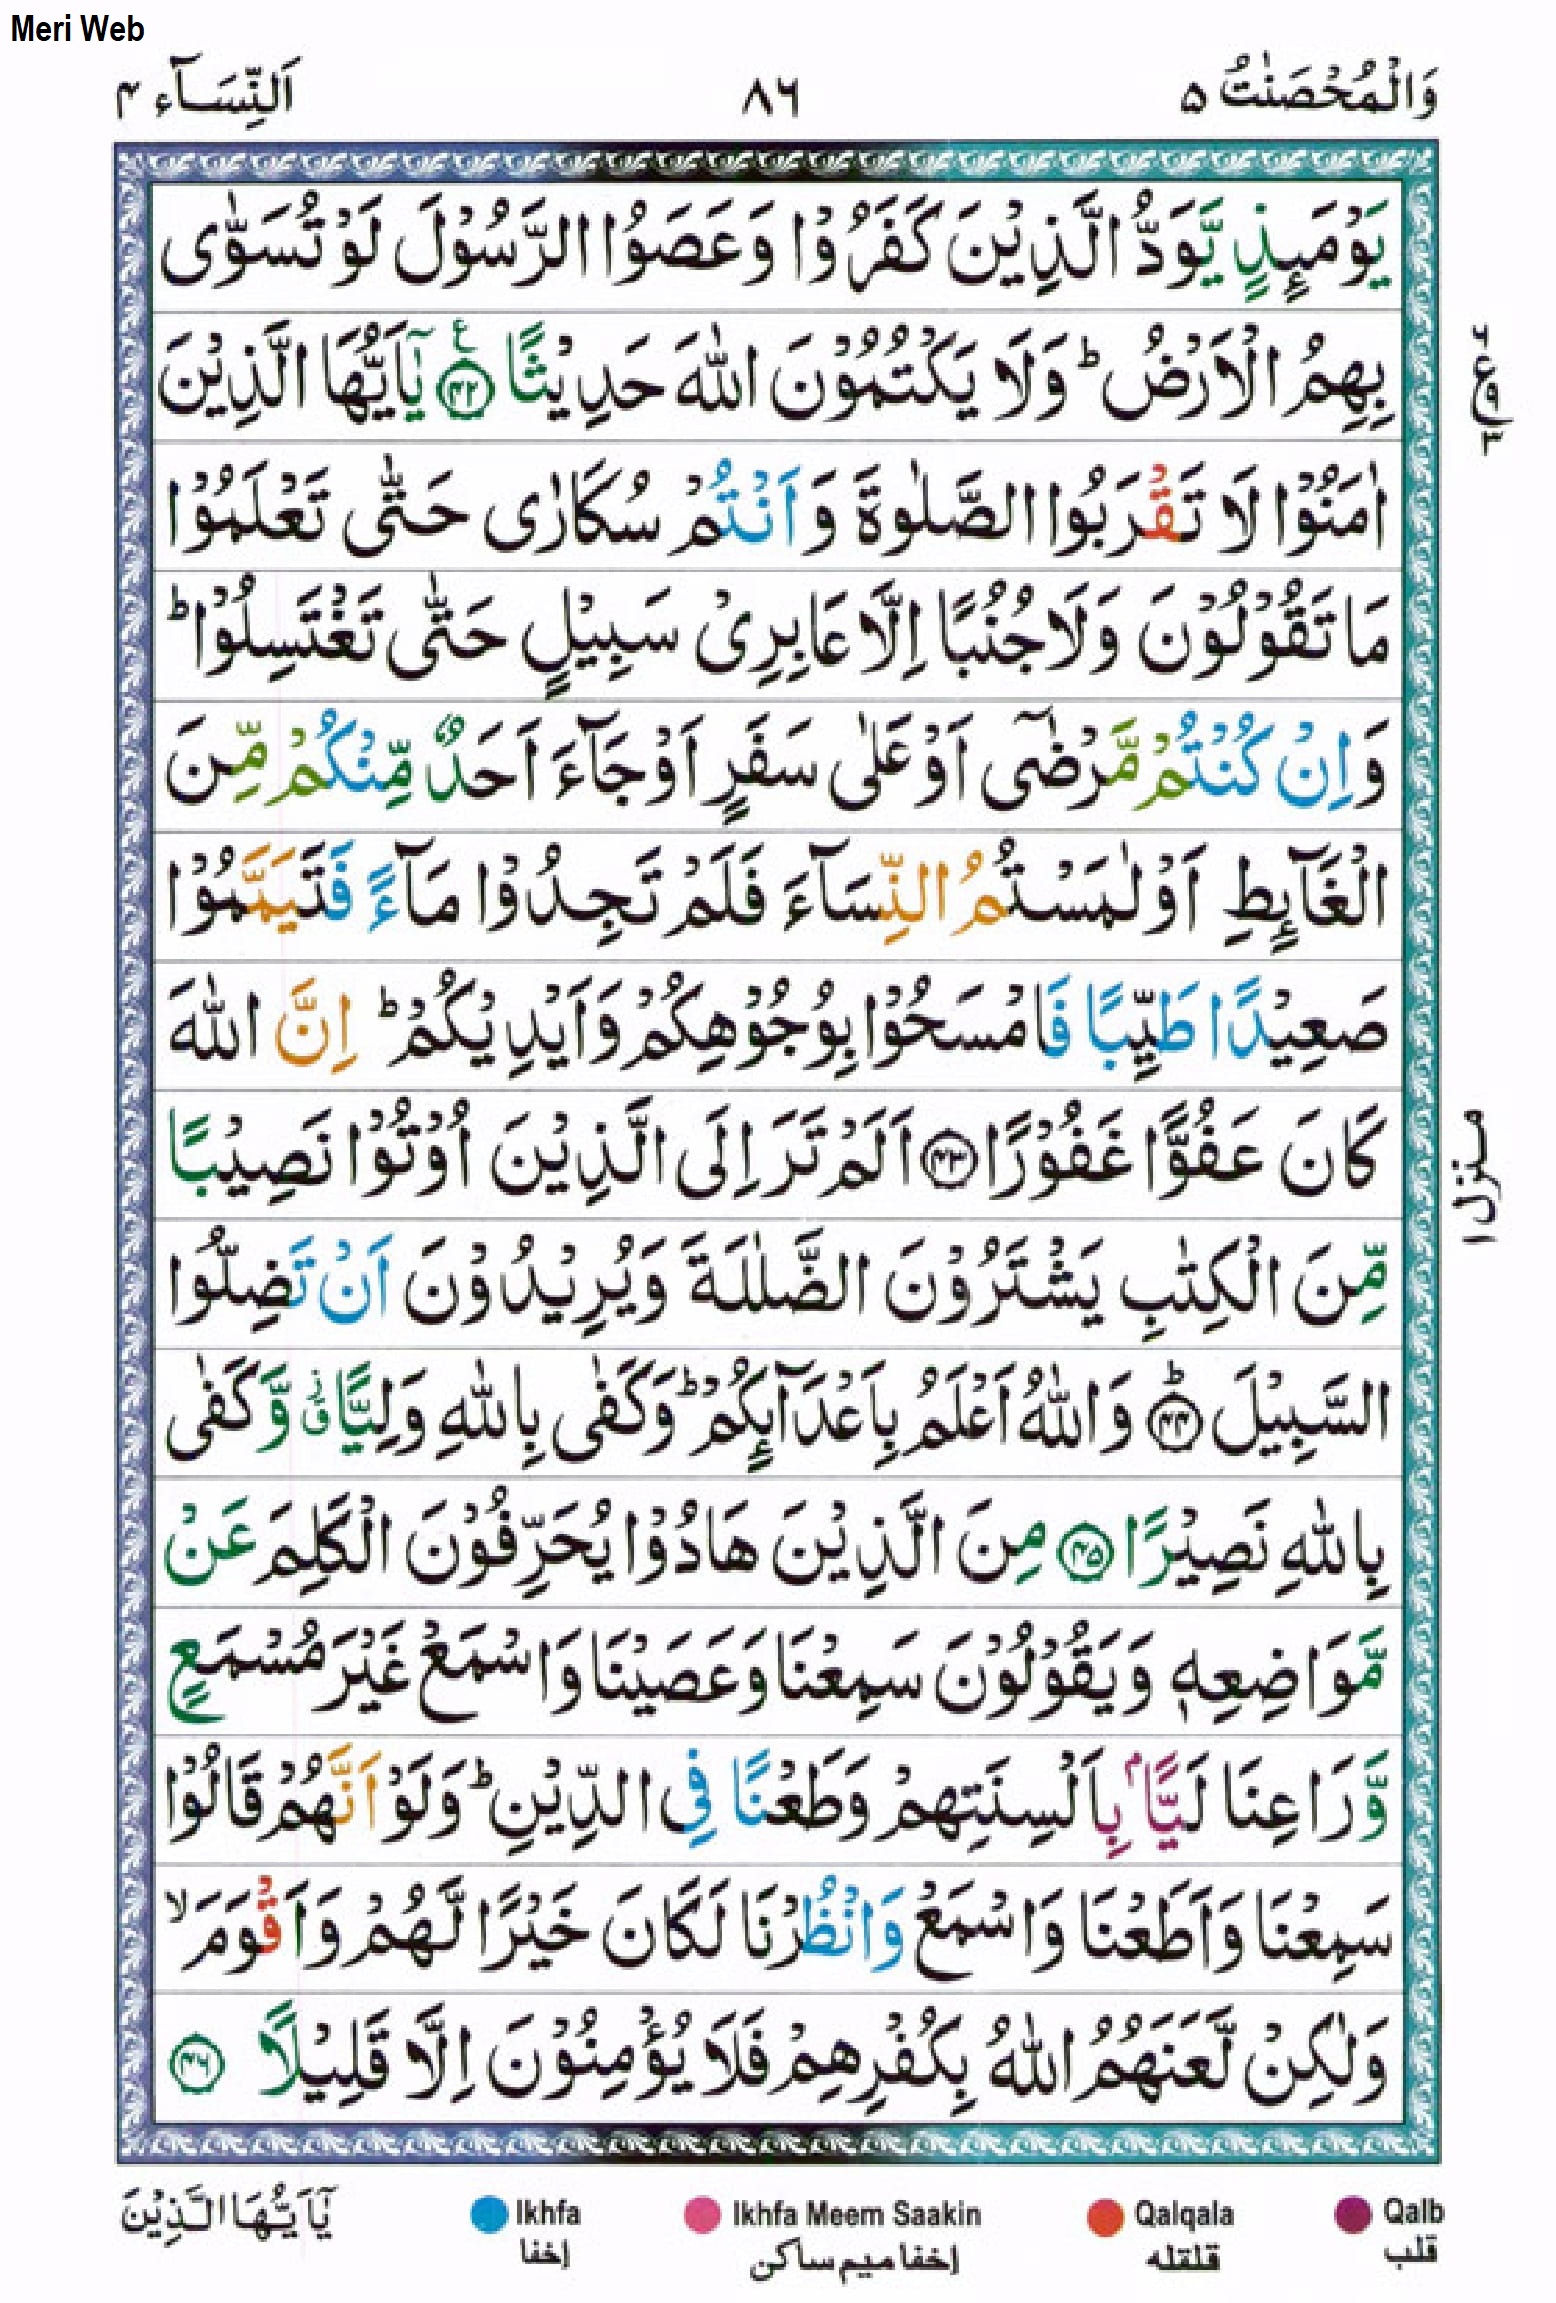 Meri Web
وَالْمُحْصَنٰتُ ۵
۸۶
اَلنِّسَآء ۴
يَوْمَئِذٍ يَّوَدُّ الَّذِيْنَ كَفَرُوْا وَعَصَوُا الرَّسُوْلَ لَوْ تُسَوّٰى
بِهِمُ الْاَرْضُ ؕ وَلَا يَكْتُمُوْنَ اللّٰهَ حَدِيْثًا ﴿۴۲﴾ يٰۤاَيُّهَا الَّذِيْنَ
اٰمَنُوْا لَا تَقْرَبُوا الصَّلٰوةَ وَاَنْتُمْ سُكَارٰى حَتّٰى تَعْلَمُوْا
مَا تَقُوْلُوْنَ وَلَا جُنُبًا اِلَّا عَابِرِىْ سَبِيْلٍ حَتّٰى تَغْتَسِلُوْا ؕ
وَاِنْ كُنْتُمْ مَّرْضٰۤى اَوْ عَلٰى سَفَرٍ اَوْ جَآءَ اَحَدٌ مِّنْكُمْ مِّنَ
الْغَآئِطِ اَوْ لٰمَسْتُمُ النِّسَآءَ فَلَمْ تَجِدُوْا مَآءً فَتَيَمَّمُوْا
صَعِيْدًا طَيِّبًا فَامْسَحُوْا بِوُجُوْهِكُمْ وَاَيْدِيْكُمْ ؕ اِنَّ اللّٰهَ
كَانَ عَفُوًّا غَفُوْرًا ﴿۴۳﴾ اَلَمْ تَرَ اِلَى الَّذِيْنَ اُوْتُوْا نَصِيْبًا
مِّنَ الْكِتٰبِ يَشْتَرُوْنَ الضَّلٰلَةَ وَيُرِيْدُوْنَ اَنْ تَضِلُّوا
السَّبِيْلَ ؕ ﴿۴۴﴾ وَاللّٰهُ اَعْلَمُ بِاَعْدَآئِكُمْ ؕ وَكَفٰى بِاللّٰهِ وَلِيًّا ۗ وَّكَفٰى
بِاللّٰهِ نَصِيْرًا ﴿۴۵﴾ مِنَ الَّذِيْنَ هَادُوْا يُحَرِّفُوْنَ الْكَلِمَ عَنْ
مَّوَاضِعِهٖ وَيَقُوْلُوْنَ سَمِعْنَا وَعَصَيْنَا وَاسْمَعْ غَيْرَ مُسْمَعٍ
وَّرَاعِنَا لَيًّاۢ بِاَلْسِنَتِهِمْ وَطَعْنًا فِى الدِّيْنِ ؕ وَلَوْ اَنَّهُمْ قَالُوْا
سَمِعْنَا وَاَطَعْنَا وَاسْمَعْ وَانْظُرْنَا لَكَانَ خَيْرًا لَّهُمْ وَاَقْوَمَ ۙ
وَلٰكِنْ لَّعَنَهُمُ اللّٰهُ بِكُفْرِهِمْ فَلَا يُؤْمِنُوْنَ اِلَّا قَلِيْلًا ﴿۴۶﴾
ع
منزل ۱
يٰۤاَيُّهَا الَّذِيْنَ
Ikhfa
إخفا
Ikhfa Meem Saakin
إخفا ميم ساكن
Qalqala
قلقله
Qalb
قلب